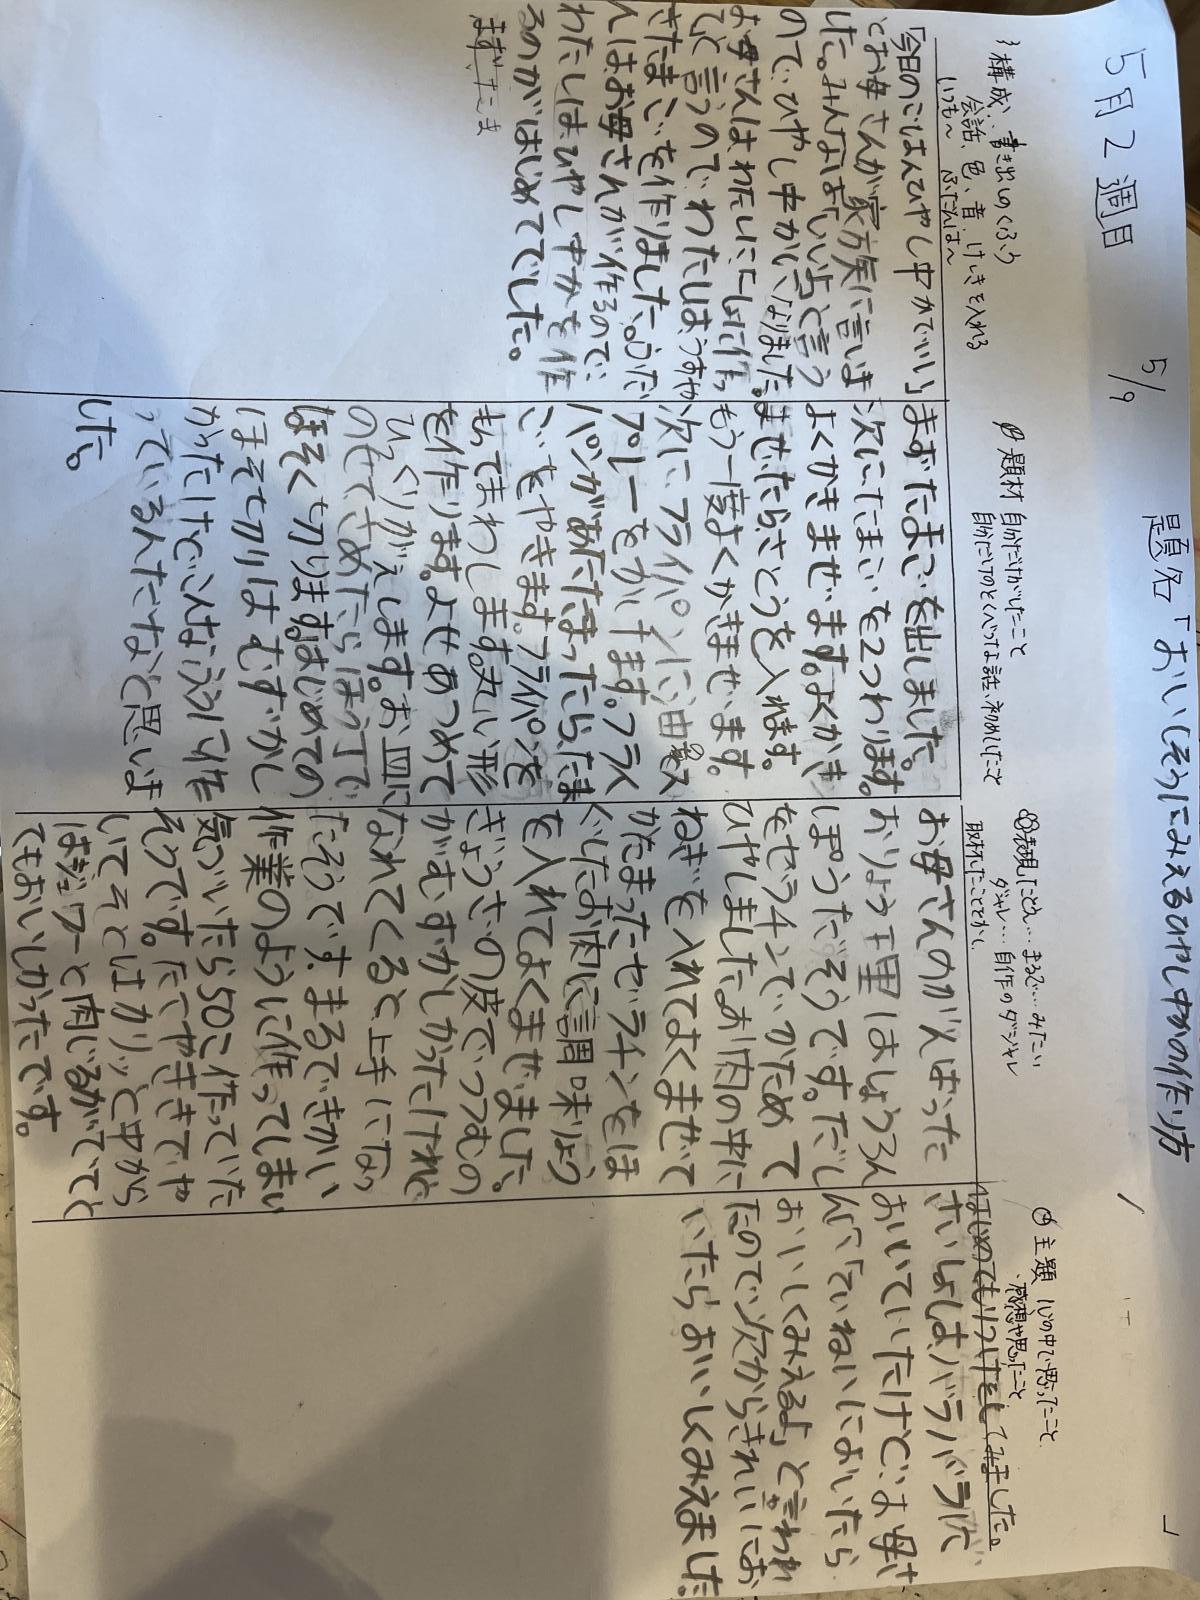 5月2週目
5/9
題名「おいしそうにみえるひやし中かの作り方」
構成… 書き出しのくふう
会話、色、音、けしきを入れる
いつも〜 ふだんは〜
「今日のごはんひやし中かでいい」
とお母さんが家族に言いま
した。みんなは「いいよ」と言う
ので、ひやし中かになりました。
お母さんはわたしに「一しょに作っ
て」と言うのでわたしはうすや
きたまごを作りました。ふだ
んはお母さんが作るので、
わたしはひやし中かを作
るのがはじめてでした。
題材 自分だけがしたこと
自分だけのとくべつな話、初めしたこと
まずたまごを出しました。
次にたまごを2つわります。
よくかきまぜます。よくかき
まぜたらさとうを入れます。
もう一度よくかきまぜます。
次にフライパンに油スプ
レーをかけます。フライ
パンがあたたまったらたま
ごをやきます。フライパンを
もってまわします丸い形
を作ります。よせあつめて
ひっくりかえします。お皿に
のせてさめたらほう丁で
ほそく切ります。はじめての
ほそ切りはむずかし
かったけどこんなふうに作
っているんだなと思いま
した。
表現 たとえ… まるで…みたい
ダジャレ… 自作のダジャレ
取材したことでかく
お母さんのがんばった
おりょう理はしょうろん
ぽうだそうです。だし
をゼラチンでかためて
ひやしましたお肉の中に
ねぎを入れてよくまぜて
かたまったゼラチンをほ
ぐしたお肉に調味りょう
を入れてよくまぜました。
ぎょうざの皮でつつむの
がむずかしかったけれど
なれてくると上手になっ
たそうです。まるできかい
作業のように作ってしまい
気づいたら50こ作っていた
そうです。たてやききでや
いてそとはカリッと中から
はジュワーと肉じるがでてと
てもおいしかったです。
主題 心の中で思ったこと
感想や思ったこと
はじめてもりつけをしてみました。
さいしょはバラバラに
おいていたけどお母さ
んに「ていねいにおいたら
おいしくみえるよ」と言われ
たので次からきれいにお
いたらおいしくみえました